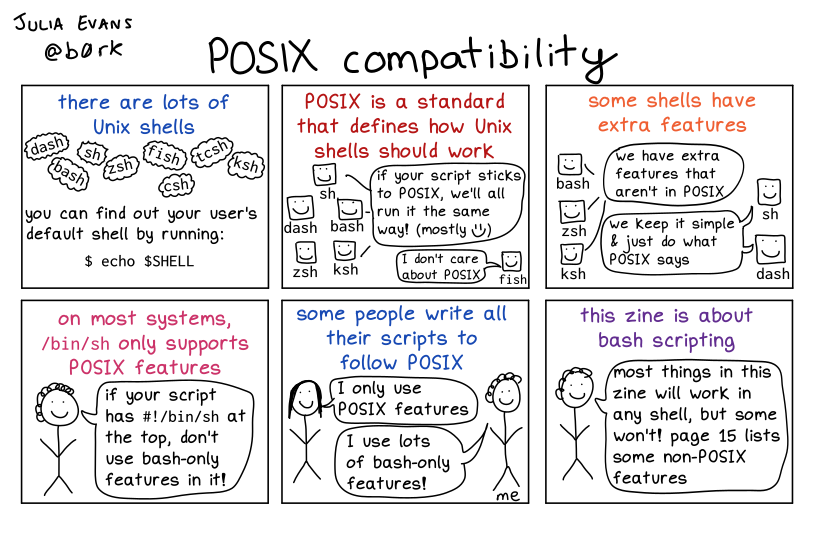 JULIA EVANS
@b0rk
POSIX compatibility
there are lots of
Unix shells
dash
sh
fish
tcsh
bash
zsh
csh
ksh
you can find out your user's
default shell by running:
$ echo $SHELL
POSIX is a standard
that defines how Unix
shells should work
sh
dash
bash
zsh
ksh
if your script sticks
to POSIX, we'll all
run it the same
way! (mostly 🙂)
I don't care
about POSIX
fish
some shells have
extra features
bash
zsh
ksh
we have extra
features that
aren't in POSIX
we keep it simple
& just do what
POSIX says
sh
dash
on most systems,
/bin/sh only supports
POSIX features
if your script
has #!/bin/sh at
the top, don't
use bash-only
features in it!
some people write all
their scripts to
follow POSIX
I only use
POSIX features
I use lots
of bash-only
features!
me
this zine is about
bash scripting
most things in this
zine will work in
any shell, but some
won't! page 15 lists
some non-POSIX
features